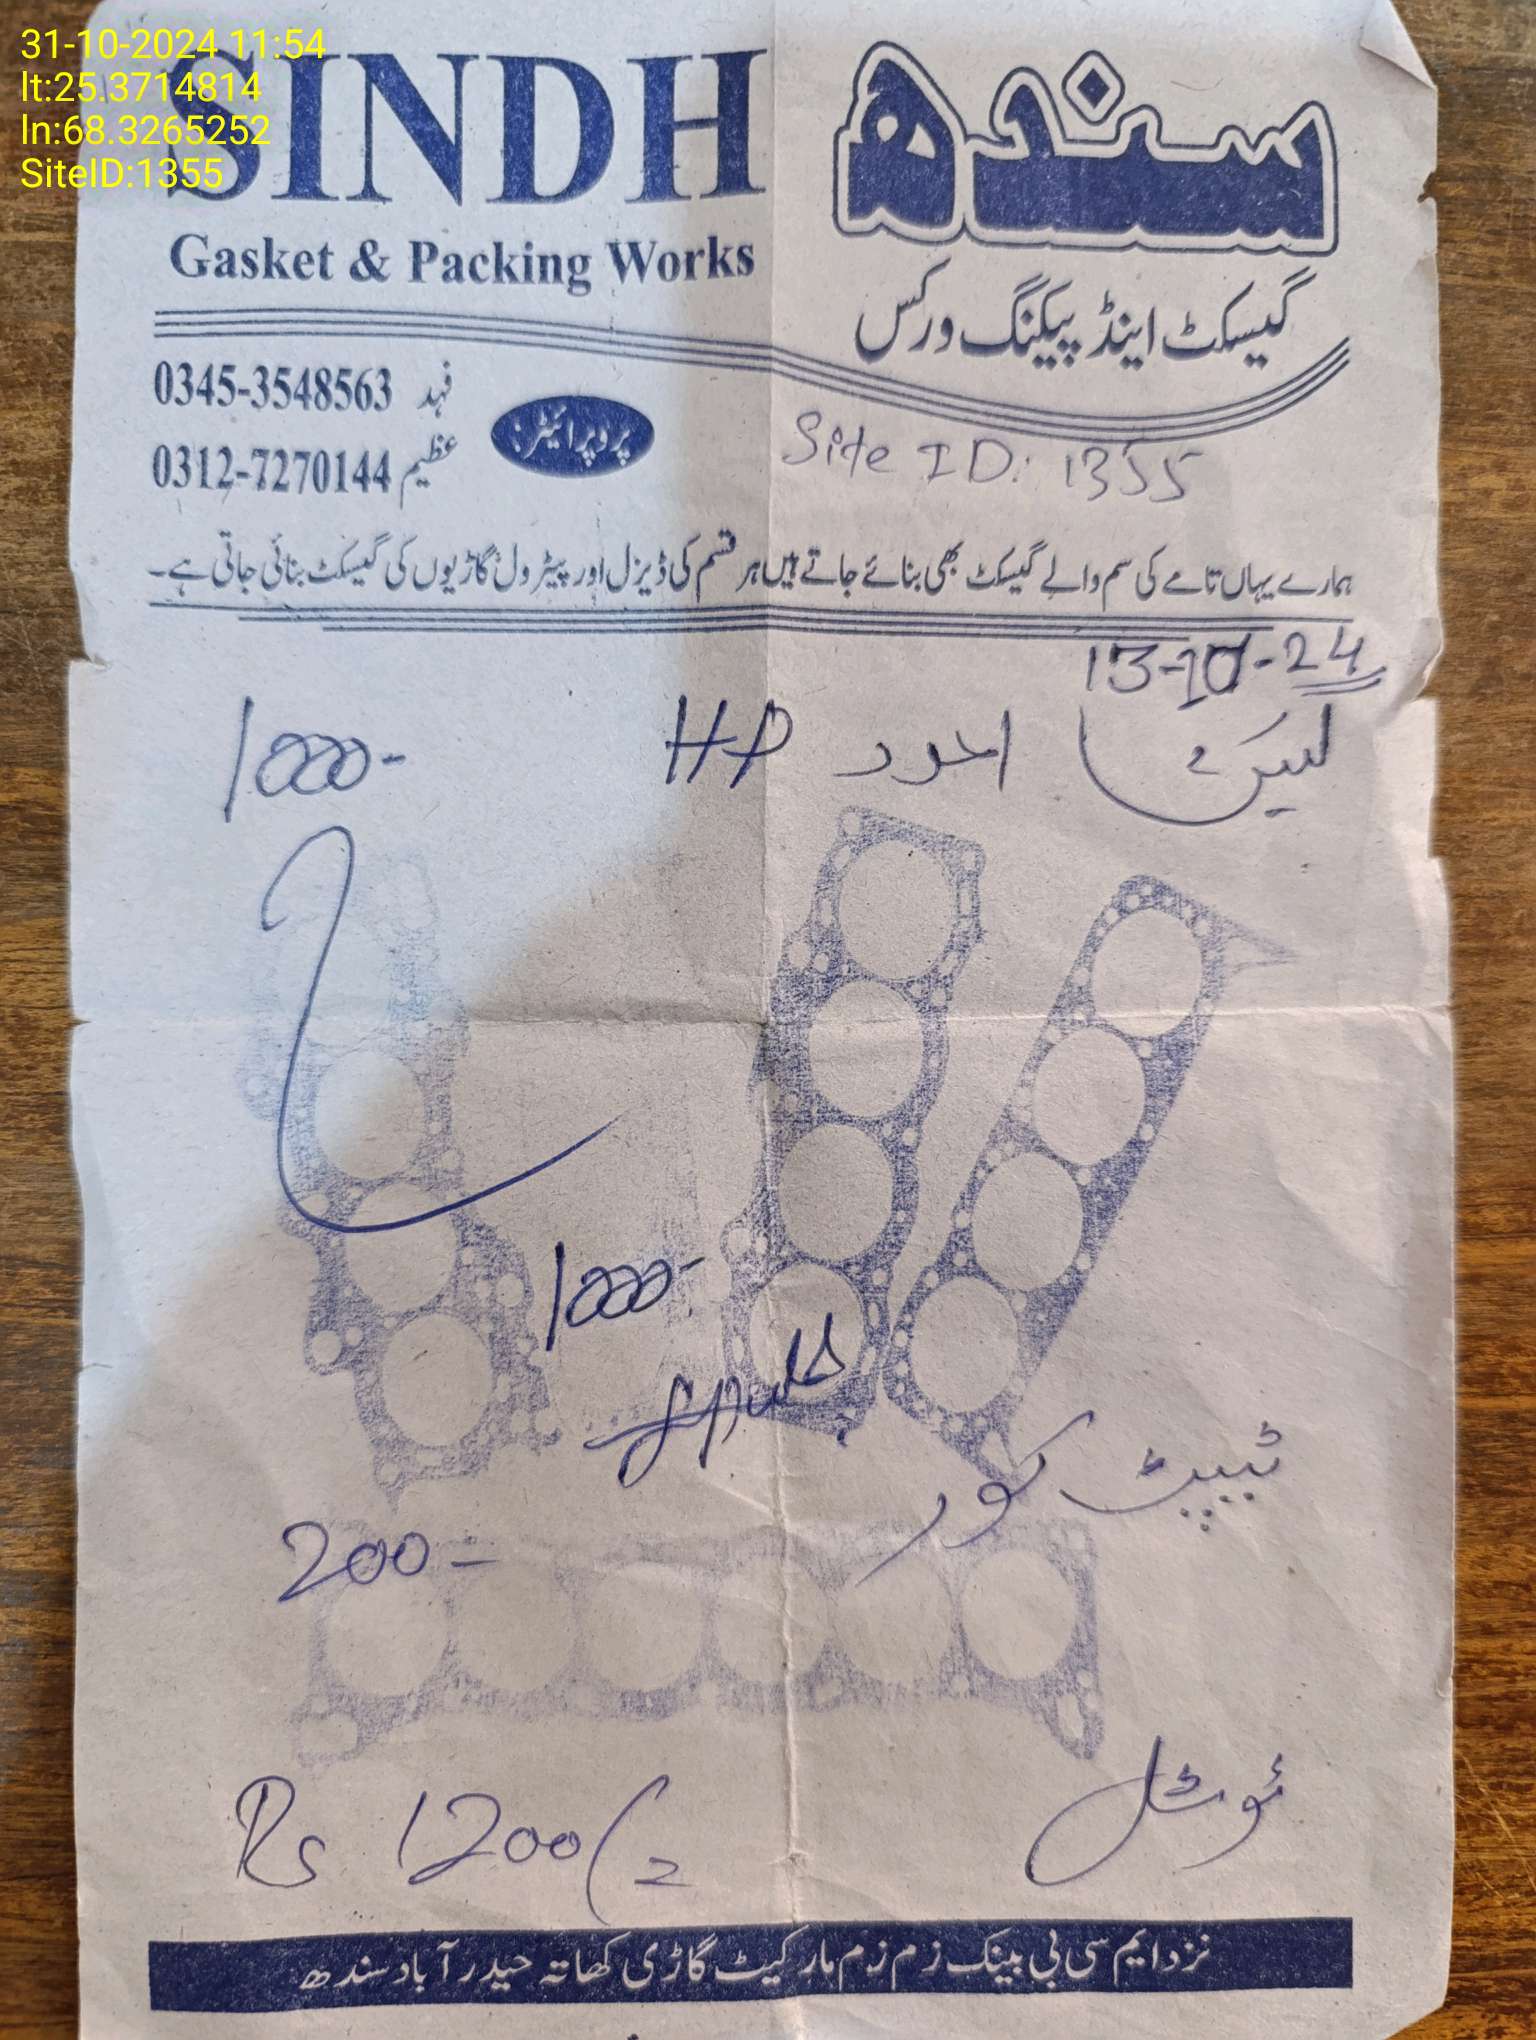 31-10-2024 11:54
lt:25.3714814
ln:68.3265252
SiteID:1355
SINDH
Gasket & Packing Works
سندھ
گیسکٹ اینڈ پیکنگ ورکس
0345-3548563 فہد
0312-7270144 عظیم
پروپرائیٹر:
Site ID: 1355
ہمارے یہاں تامے کی سم والے گیسکٹ بھی بنائے جاتے ہیں ہر قسم کی ڈیزل اور پیٹرول گاڑیوں کی گیسکٹ بنائی جاتی ہے۔
13-10-24
HP 1000-
1000-
ٹیپٹ کور 200-
ٹوٹل Rs 1200/=
نزد ایم سی بی بینک زم زم مارکیٹ گاڑی کھاتہ حیدرآباد سندھ